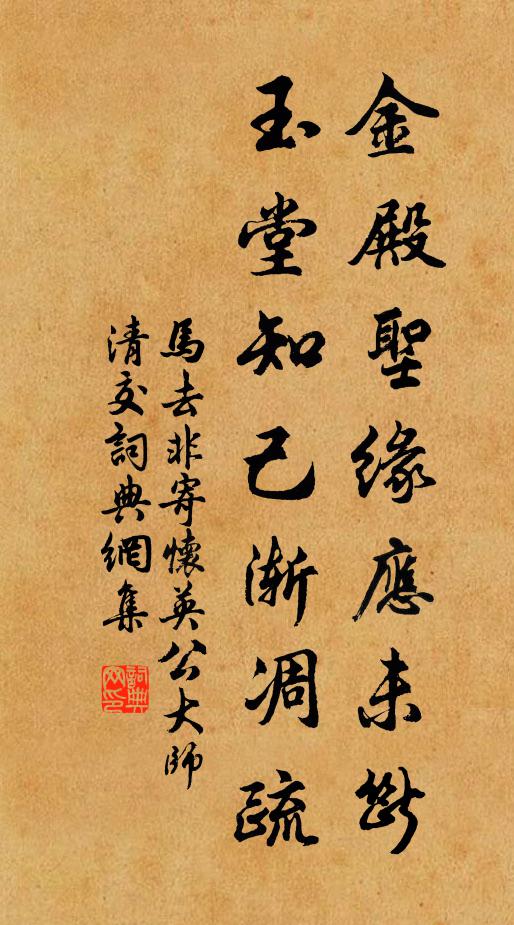 金殿聖緣應未斷
玉堂知己漸凋疏
馬去非寄懷英公大師
清交詞典網集
詞典網印